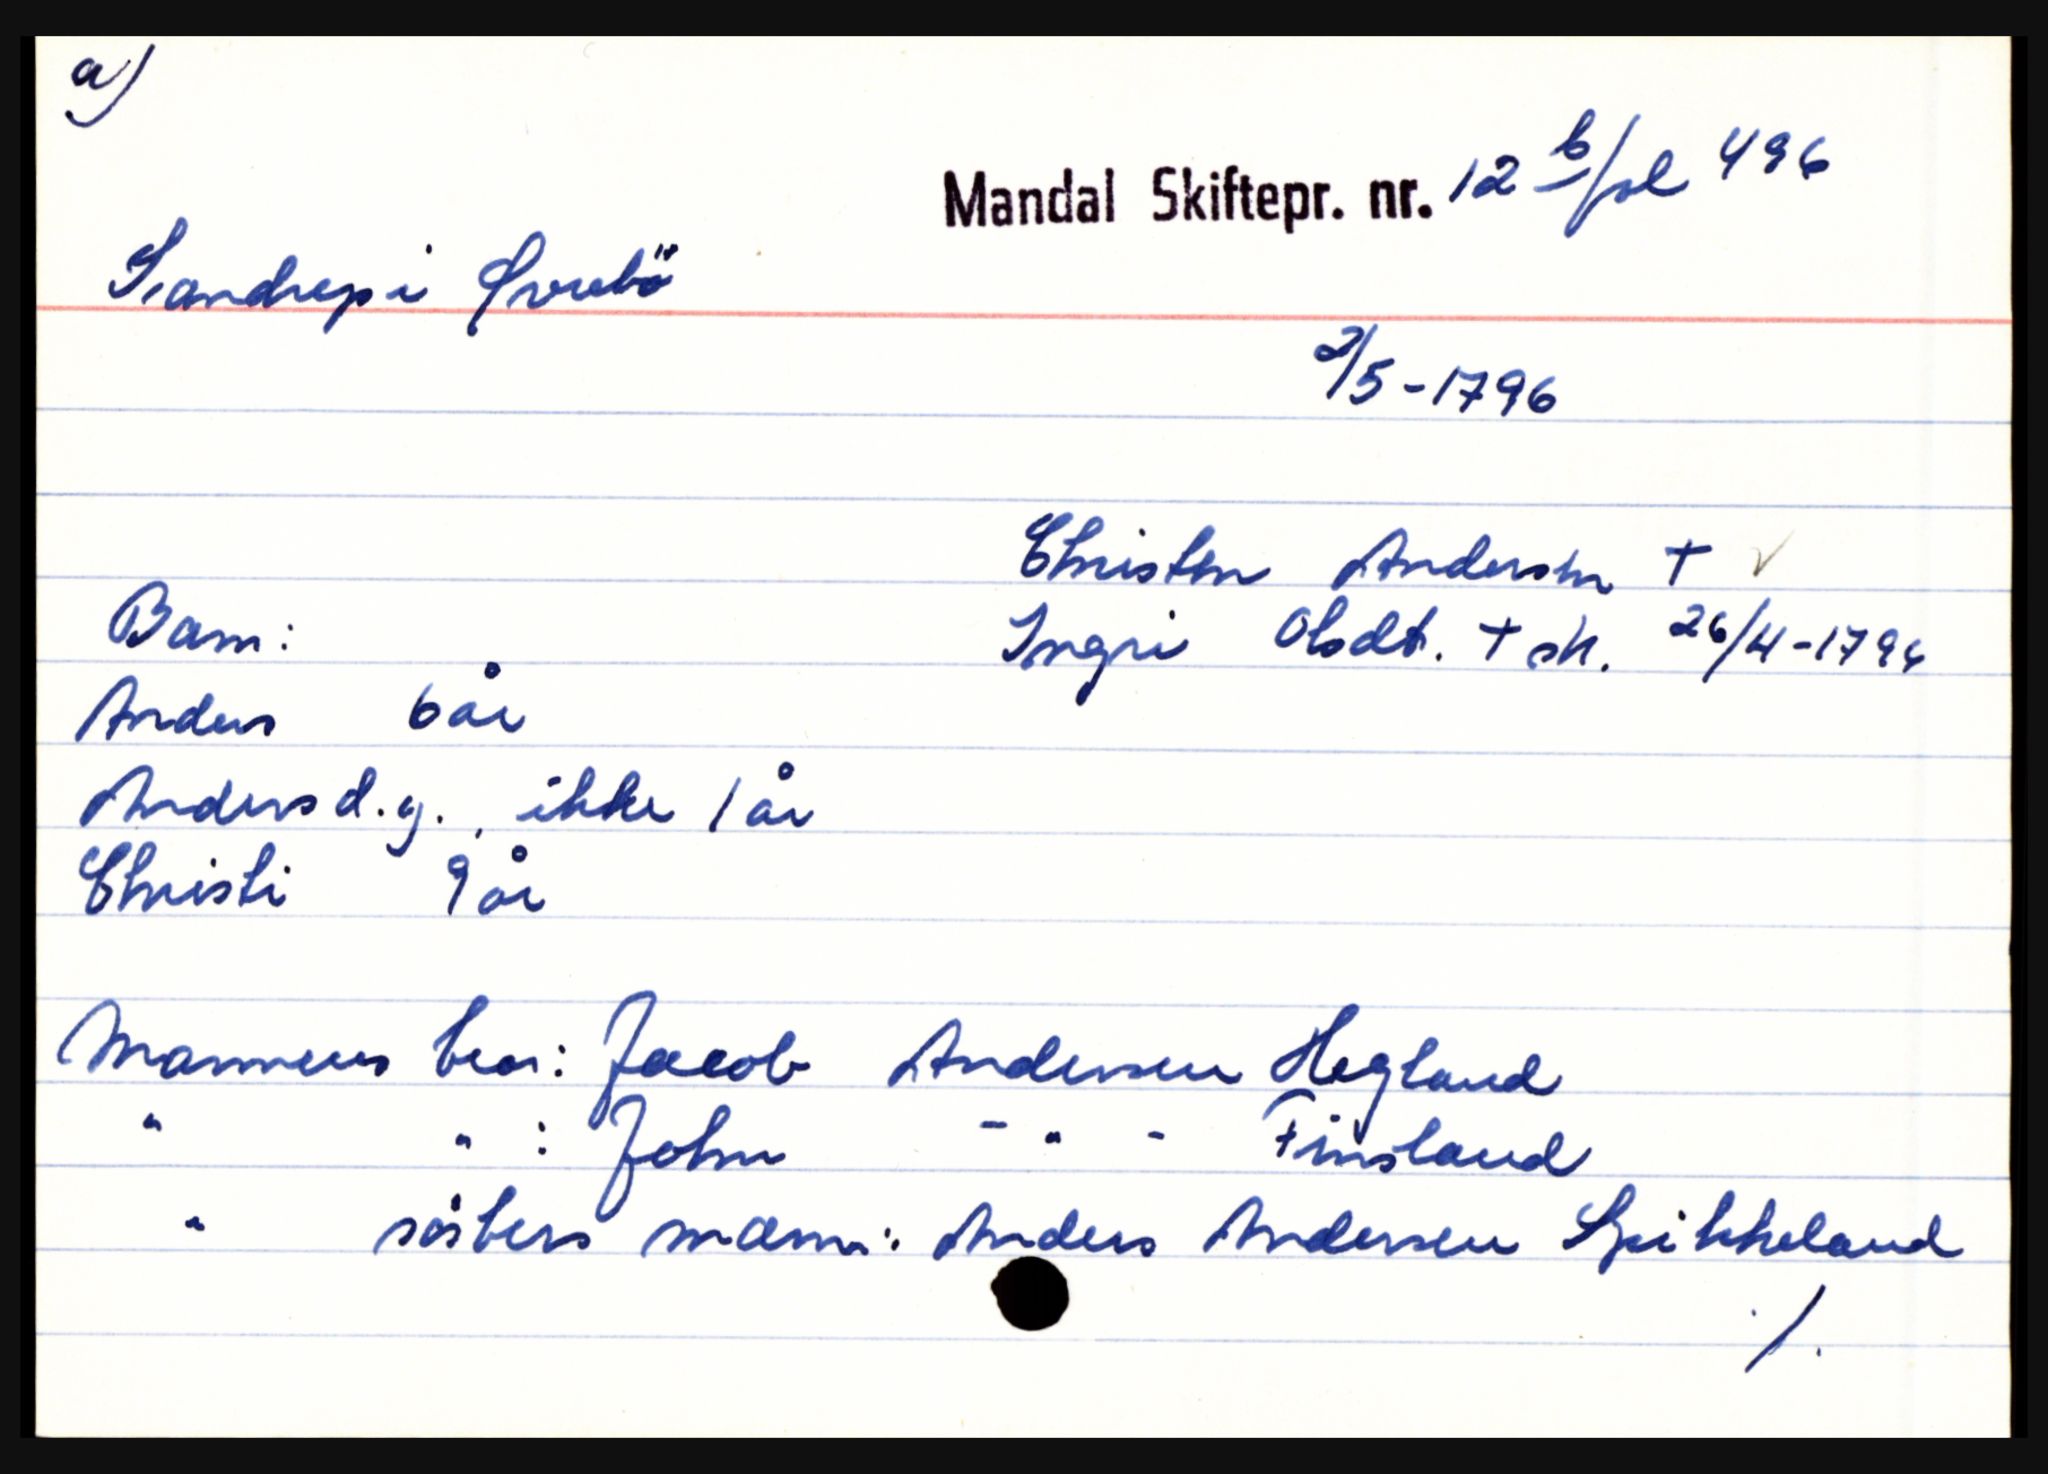 a)
Mandal Skiftepr. nr. 12 b/pl 496
i Øvrebö
2/5-1796
Christen Andersen +
Barn: Ingri Olsdt. + sk. 26/4-1796
Anders 6 år
Anders d.y., ikke 1 år
Christi 9 år
Mannens bror: Jacob Andersen Hegland
" " : John - " - Finsland
" sösters mann: Anders Andersen Spikkeland
./.